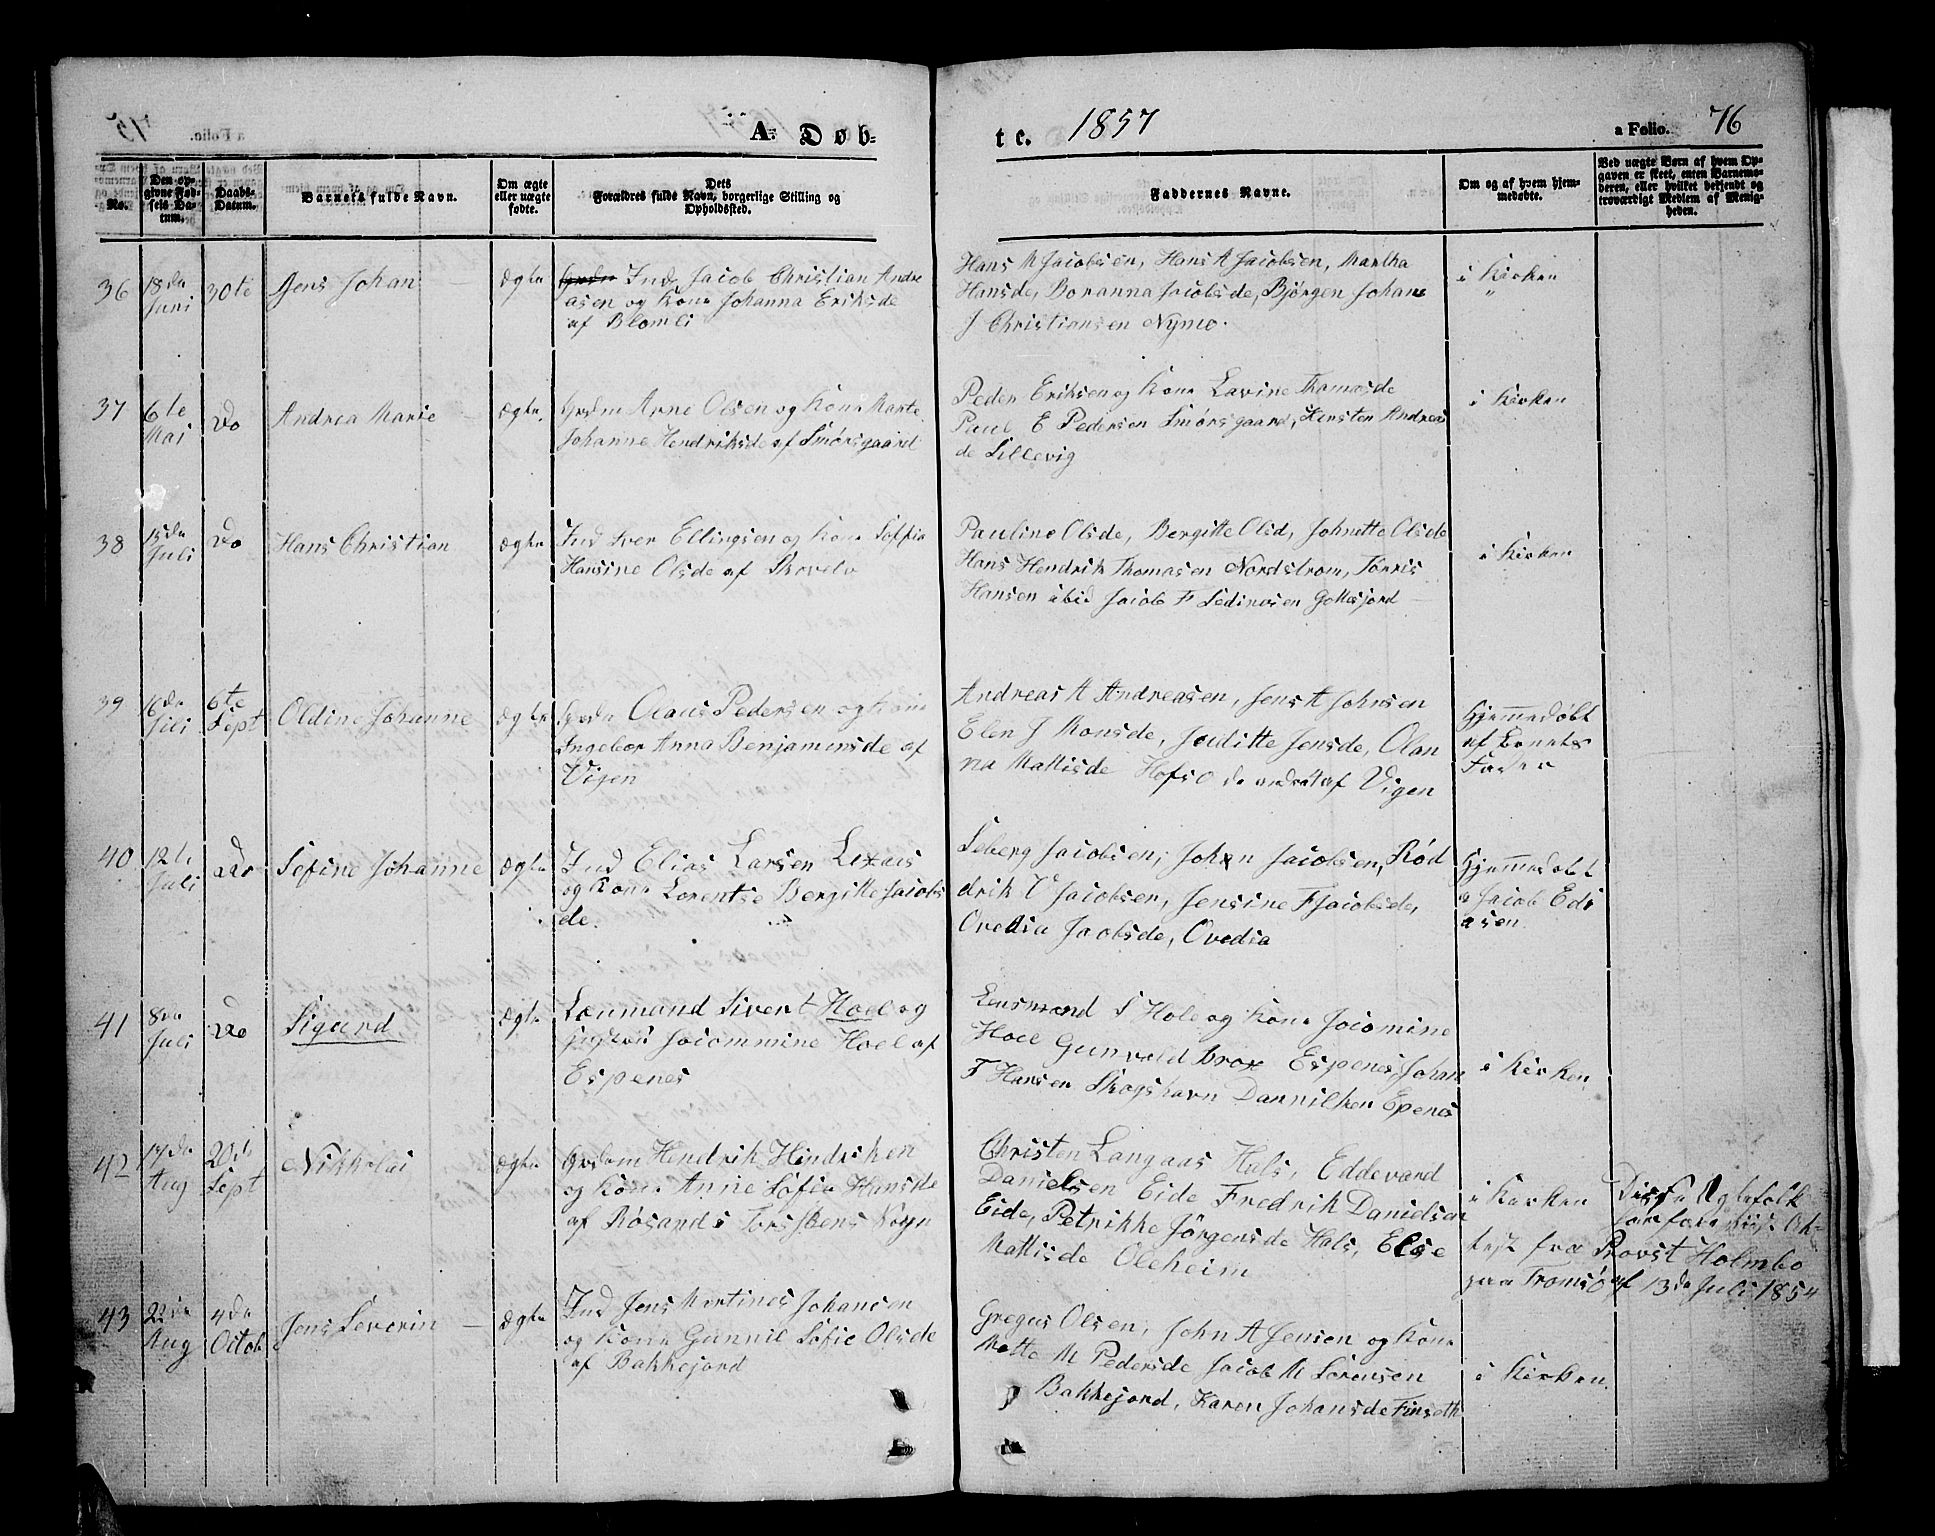 A. Døb-
te. 1857
a Folio. 76
No.
Den op-
givne Fød-
sels Da-
tum.
Daabs-
Datum.
Barnets fulde Navn.
Om ægte
eller uægte
fødte.
Dets
Forældres fulde Navn, borgerlige Stilling og
Opholdssted.
Faddernes Navne.
Om og af hvem hjem-
medøbte.
Ved uægte Børn af hvem Op-
gaven er skeet, enten Barnemo-
deren, eller hvilket bekjendt og
troværdigt Medlem af Menig-
heden.
36
18de
Juni
30te
Jens Johan
Ægte
Ind Jacob Christian Andre
asen og Kone Johanna Eriksde
af Blomli
Hans M Jacobsen, Hans A Jacobsen, Martha
Hansde, Boranna Jacobsde, Bjørgen Johan
J Christiansen Nymo.
i Kirken
37
6te
Mai
Do
Andrea Marie
Ægte
Grdm Arne Olsen og Kone Marte
Johanne Hendriksde af Smørsgaard
Peder Eriksen og Kone Lavine Thomasde
Paul E Pedersen Smørsgaard, Kirsten Andreas
de Lillevig
i Kirken
38
15de
Juli
Do
Hans Christian
Ægte
Ind Iver Ellingsen og Kone Soffia
Hansine Olsde af Skovelv
Pauline Olsde, Bergitte Olsd, Johnette Olsde
Hans Hendrik Thomasen Nordstrøm, Tørris
Hansen ibid Jacob F Sedinosen Gottesjord
i Kirken
39
16de
Juli
6te
Sept
Oldine Johanne
Ægte
Claus Pedersen og Kone
Ingebor Anna Benjaminsde af
Vigen
Andreas A Andreasen, Jens A Johnsen
Elen J Monsde, Juditte Jensde, Olan
na Mattisde Hofsø de andre af Vigen
Hjemmedøbt
af Barnets
Fader
40
12te
Juli
Do
Sefine Johanne
Ægte
Ind Elias Larsen Lexaas
og Kone Lorentse Bergitte Jacobs
de.
Seberg Jacobsen, Johan Jacobsen, Rød
drik V Jacobsen, Jensine F Jacobsde,
Ovedia Jacobsde, Ovedia
Hjemmedøbt
a Jacob Edi
asen
41
8de
Juli
Do
Sigurd
Ægte
Lænmand Sivert Hoel og
Jacommine Hoel af
Espenes
Lensmand S Hole og Kone Jocomine
Hoel Gunvald Brox Espenes, Johan
F Hansen Skogshavn Dannilken Epenes
i Kirken
42
17de
Aug
20de
Sept
Nikkolai
Ægte
Grdm Hendrik Hindriken
og Kone Anne Sofia Hansde
af Røsands
Christen Langaas Hals, Eddevard
Danielsen Eide Fredrik Danielsen
Eide, Petrikke Jørgensde Hals, Else
Mattisde Oleheim
i Kirken
Disse Ægtefolk
test fra Provst Holmbo
paa Tromsø af 13de Juli 1854
43
22de
Aug
4de
Octob
Jens Severin
Ægte
Ind Jens Mertines Johansen
og Kone Gunnil Sofie Olsde
af Bakkejord
Gregus Olsen, John A Jenson og Kone
Matte M Pedersde Jacob M Sørensen
Bakkejord, Karen Johansde Finseth
i Kirken